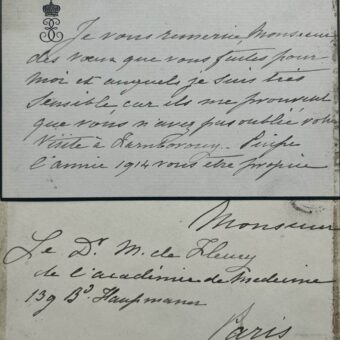 Je vous remercie Monsieur
des vœux que vous faites pour
moi et auxquels je suis très
sensible car ils me prouvent
que vous n'avez pas oublié votre
visite à Farnborough. Puisse
l'année 1914 vous être propice
Monsieur
Le Dr. M. de Fleury
de l'académie de Medecine
139 Bd. Haussmann
Paris